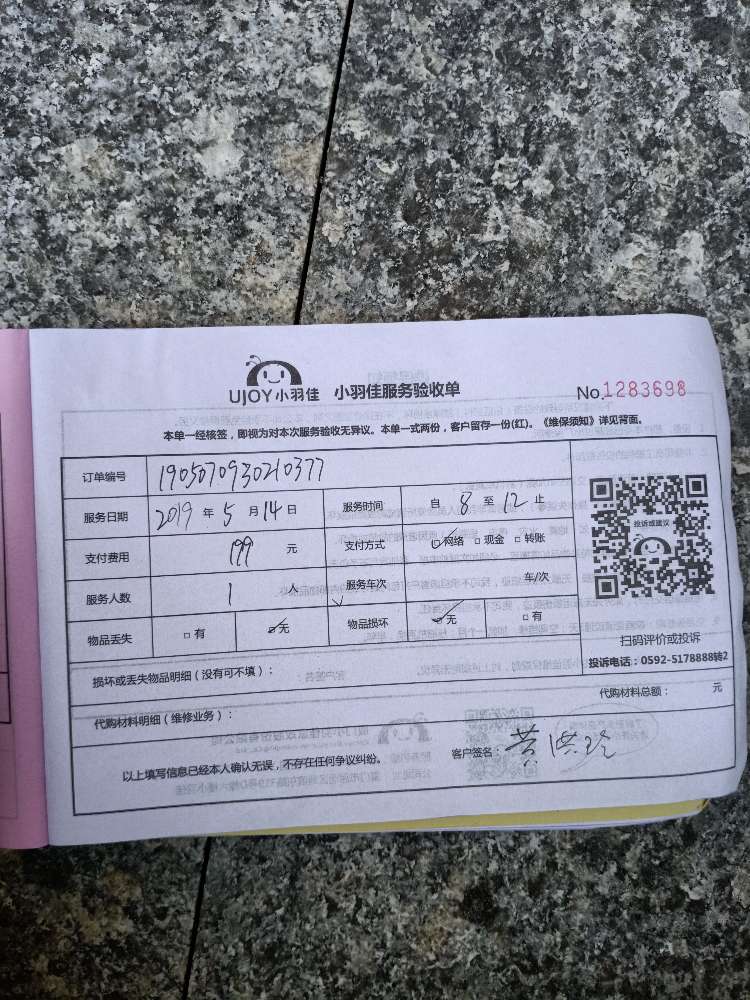 UJOY小羽佳 小羽佳服务验收单 No.1283698
本单一经核签，即视为对本次服务验收无异议。本单一式两份，客户留存一份(红)。《维保须知》详见背面。
订单编号 1905070930210377
服务日期 2019 年 5 月 14 日 服务时间 自 8 至 12 止
支付费用 199 元 支付方式 ☑网络 □现金 □转账
服务人数 1 人 服务车次 车/次
物品丢失 □有 ☑无 物品损坏 ☑无 □有
投诉或建议
扫码评价或投诉
投诉电话：0592-5178888转2
损坏或丢失物品明细（没有可不填）：
代购材料明细（维修业务）： 代购材料总额： 元
以上填写信息已经本人确认无误，不存在任何争议纠纷。 客户签名：黄洪玲